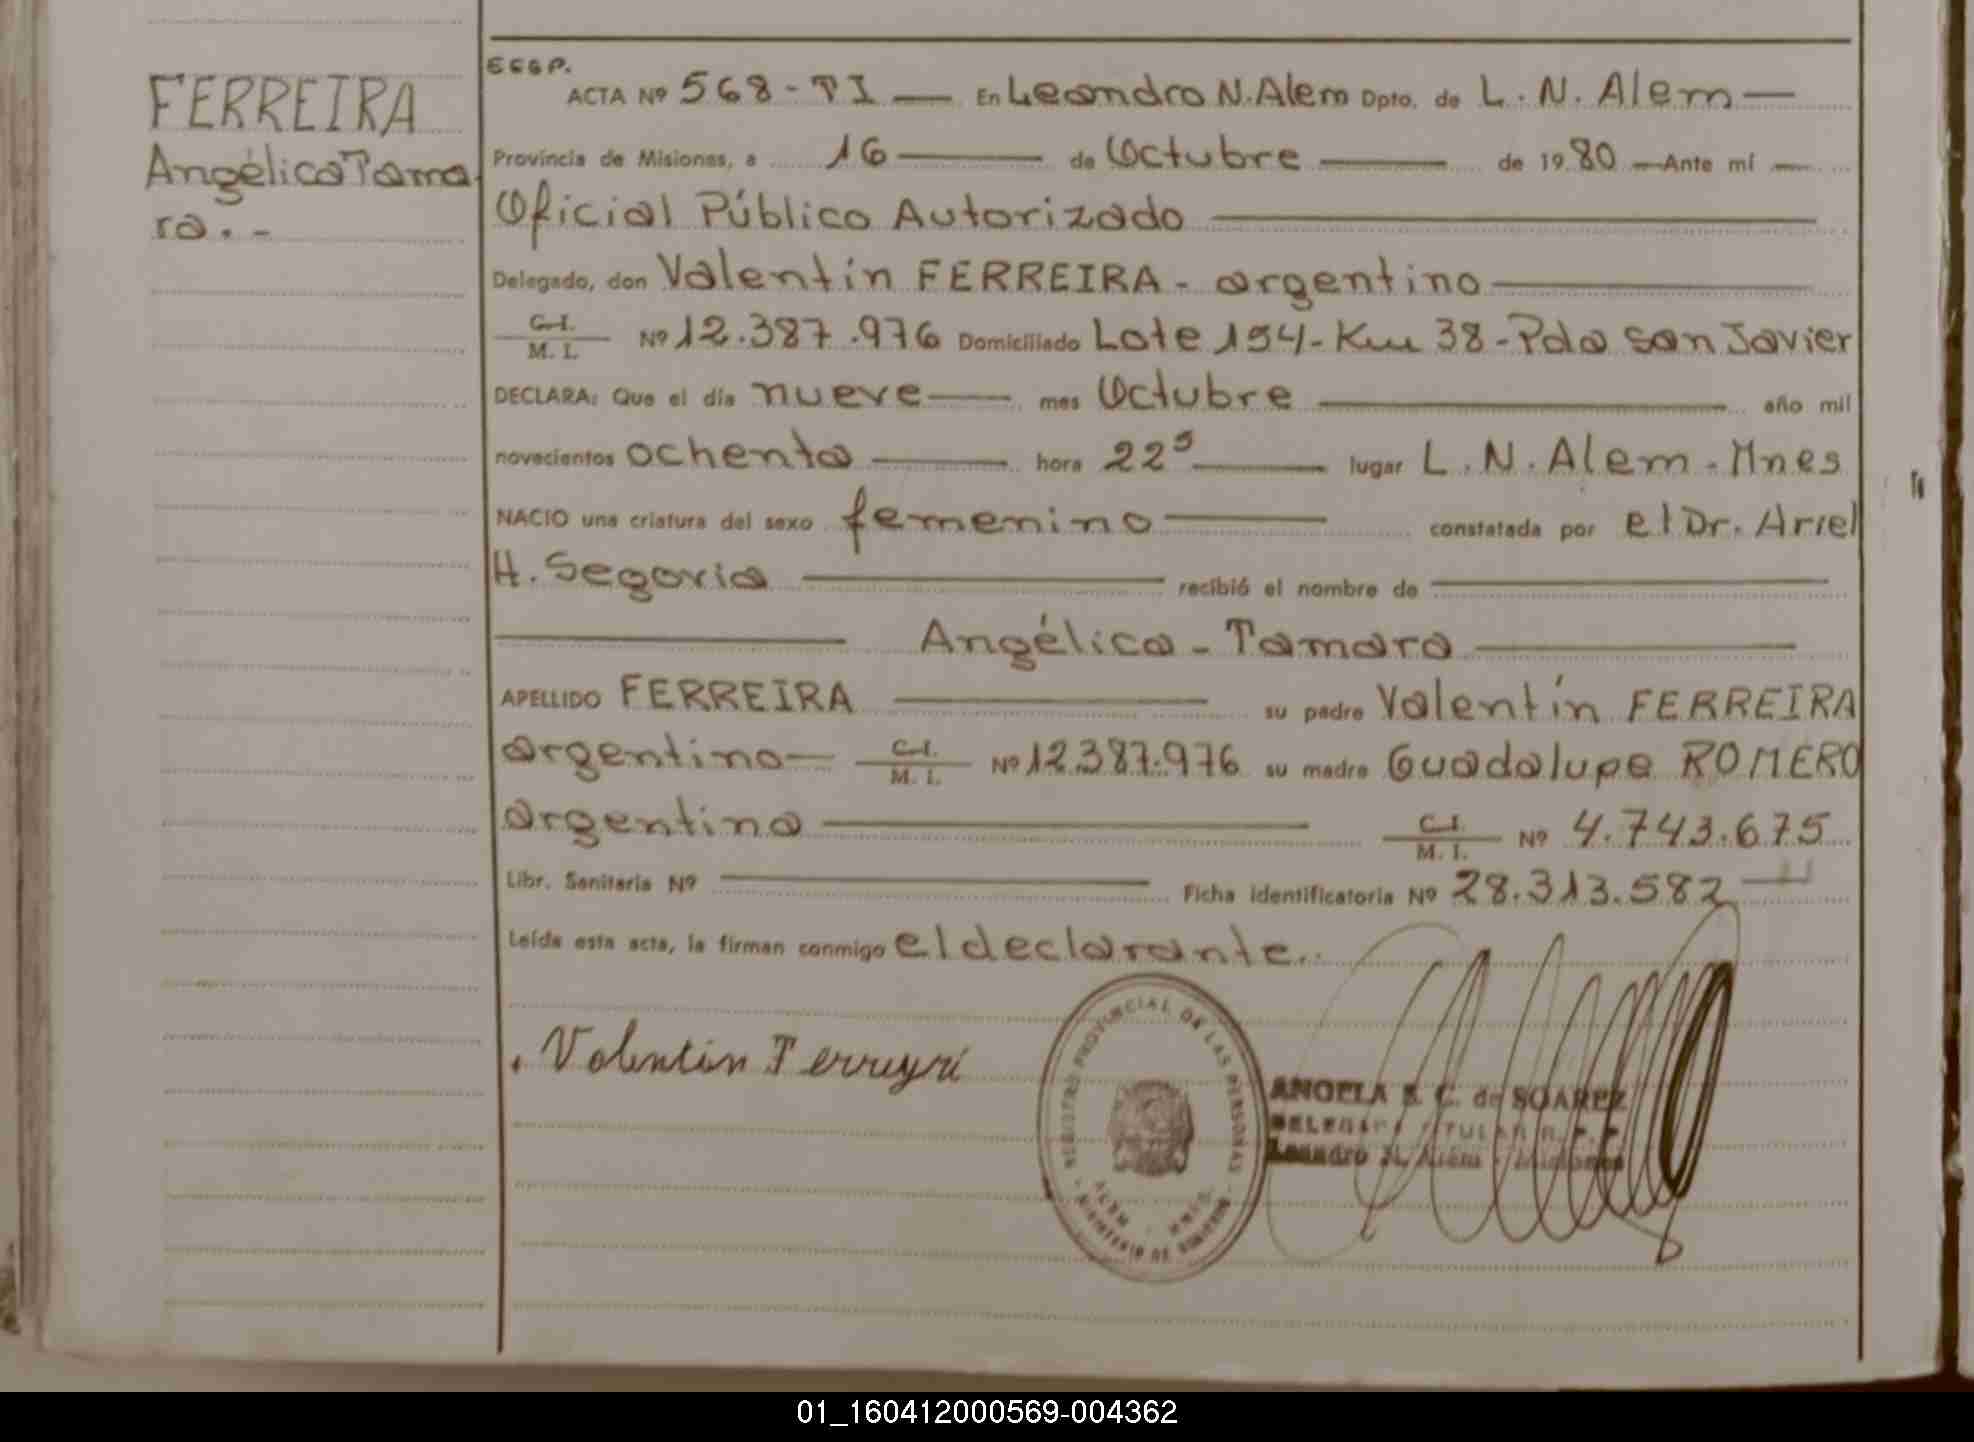 FERREIRA
Angélica Tama
ra.-
ACTA Nº 568-TI — En Leandro N. Alem Dpto. de L. N. Alem —
Provincia de Misiones, a 16 — de Octubre — de 1980 — Ante mí —
Oficial Público Autorizado
Delegado, don Valentín FERREIRA - argentino
C.I. / M. I. Nº 12.387.976 Domiciliado Lote 154 - Km 38 - Pda San Javier
DECLARA: Que el día nueve — mes Octubre — año mil
novecientos ochenta — hora 22s — lugar L. N. Alem - Mnes
NACIO una criatura del sexo femenino — constatada por el Dr. Ariel
H. Segovia — recibió el nombre de —
— Angélica - Tamara —
APELLIDO FERREIRA — su padre Valentín FERREIRA
argentino — C.I. / M. I. Nº 12.387.976 su madre Guadalupe ROMERO
argentina — C.I. / M. I. Nº 4.743.675
Libr. Sanitaria Nº — Ficha identificatoria Nº 28.313.582 —
Leída esta acta, la firman conmigo el declarante..
Valentin Ferreyri
REGISTRO PROVINCIAL DE LAS PERSONAS
MINISTERIO DE GOBIERNO
ANGELA S. C. de SOAREZ
DELEGADA TITULAR R. P. P.
Leandro N. Alem - Misiones
01_160412000569-004362